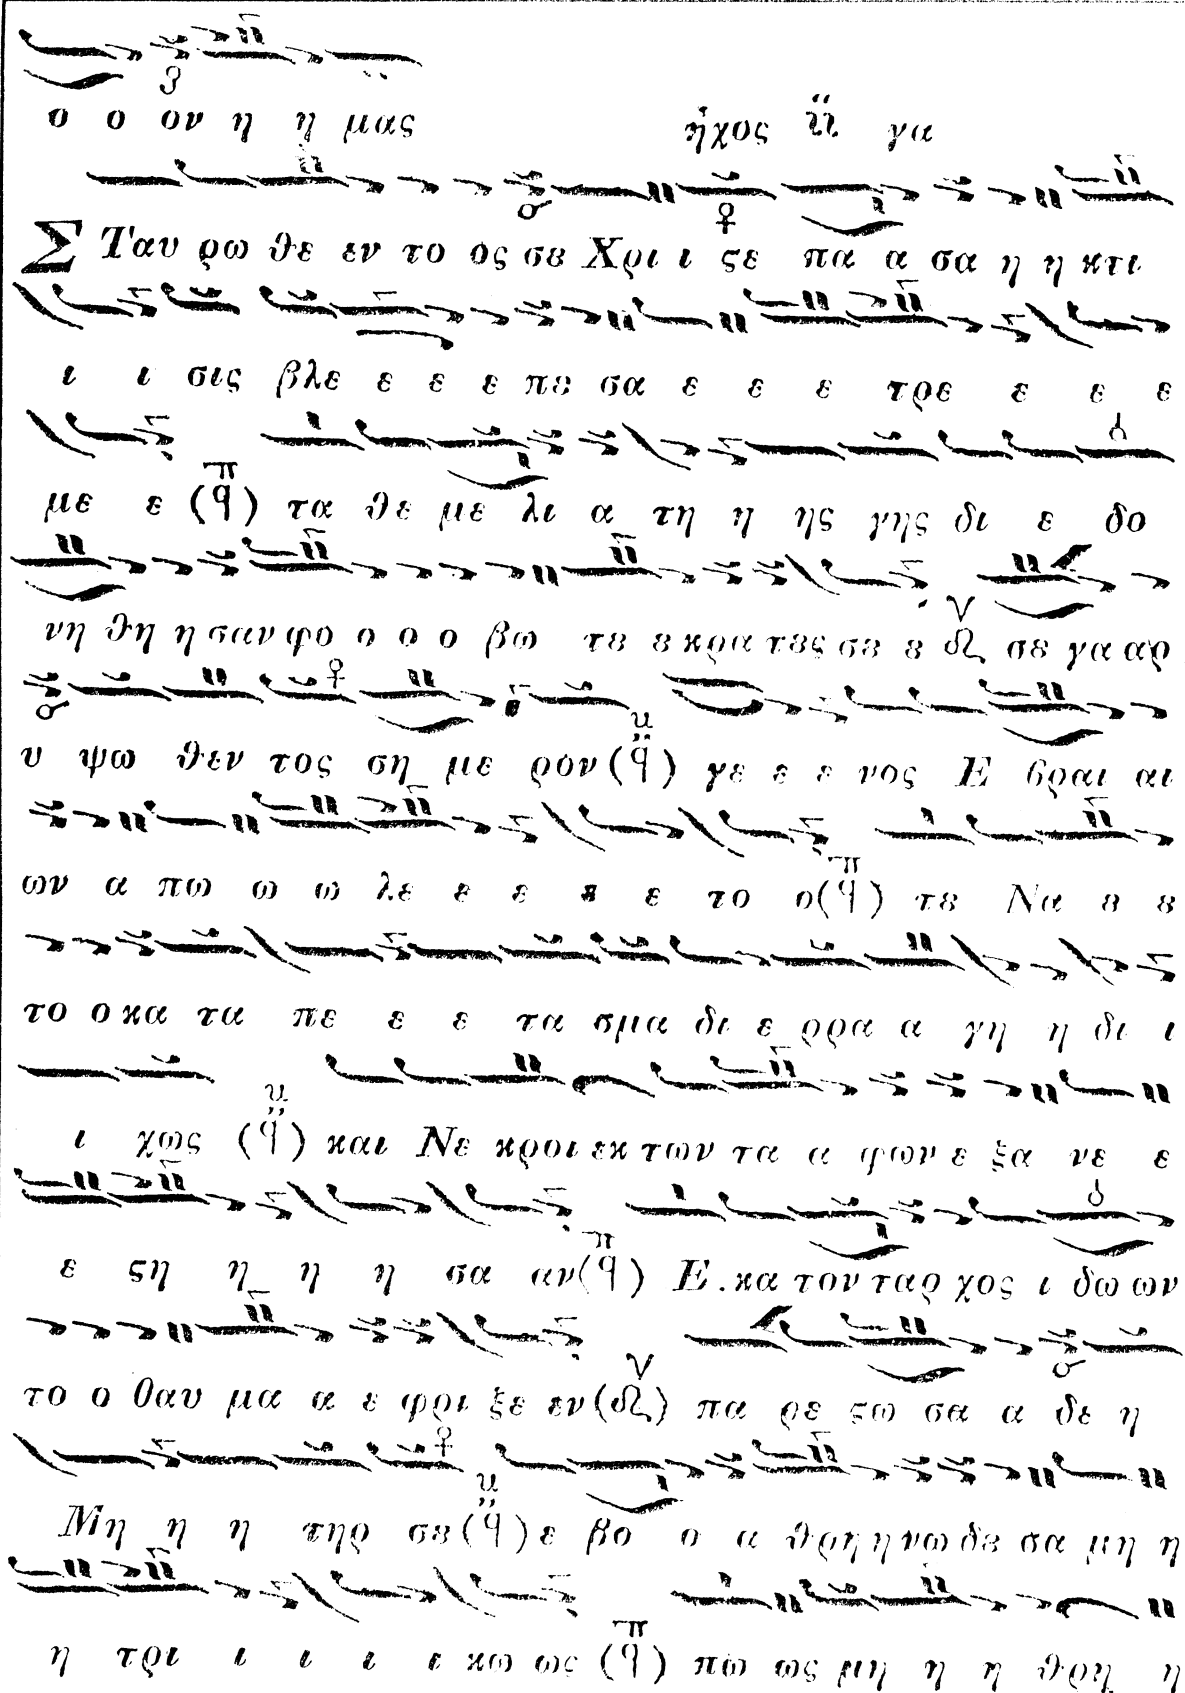 ο ο ον η η μας ἦχος γα
Σ Ταυ ρω θε εν το ος σȣ Χρι ι ϛε πα α σα η η κτι
ι ι σις βλε ε ε ε πȣ σα ε ε ε τρε ε ε ε
με ε (π ϥ) τα θε με λι α τη η ης γης δι ε δο
νη θη η σαν φο ο ο ο βω τȣ ȣ κρα τȣς σȣ ȣ σε γα αρ
υ ψω θεν τος ση με ρον (ϥ) γε ε ε νος Ε βραι αι
ων α πω ω ω λε ε ε ε ε το ο (π ϥ) τȣ Να ȣ ȣ
το ο κα τα πε ε ε τα σμα δι ε ρρα α γη η δι ι
ι χως (ϥ) και Νε κροι εκ των τα α φων ε ξα νε ε
ε ϛη η η η σα αν (π ϥ) Ε. κα τον ταρ χος ι δω ων
το ο θαυ μα α ε φρι ξε εν πα ρε ϛω σα α δε η
Μη η η τηρ σȣ (ϥ) ε βο ο α θρη η νω δȣ σα μη η
η τρι ι ι ι ι κω ως (π ϥ) πω ως μη η η θρη η